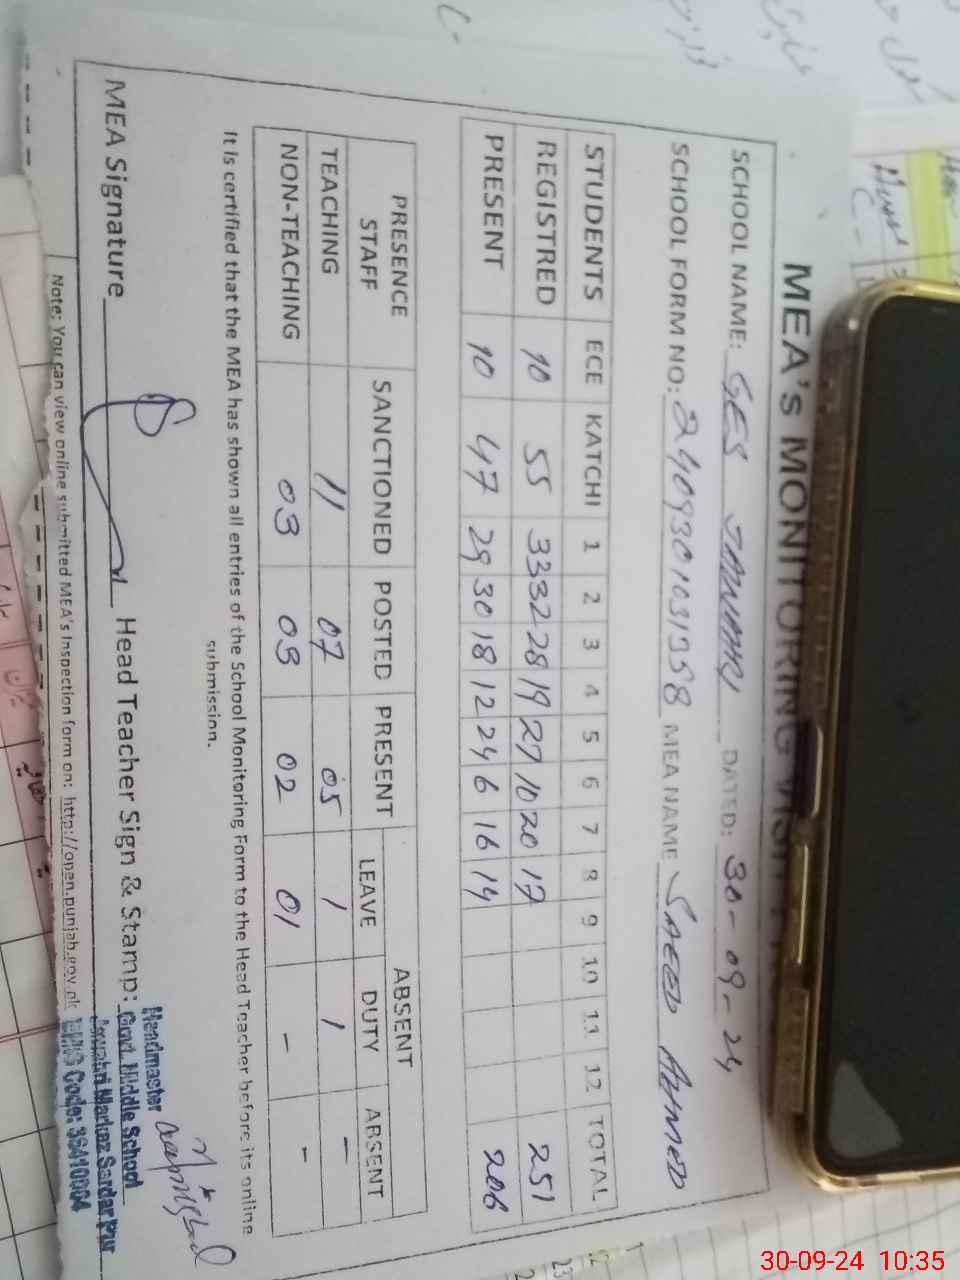 MEA's MONITORING
SCHOOL NAME: GES JAWAHRI DATED: 30-09-24
SCHOOL FORM NO: 2409301031358 MEA NAME SAEED AHMED
STUDENTS ECE KATCHI 1 2 3 4 5 6 7 8 9 10 11 12 TOTAL
REGISTRED 10 55 33 32 28 19 27 10 20 17 251
PRESENT 10 47 29 30 18 12 24 6 16 14 206
PRESENCE STAFF SANCTIONED POSTED PRESENT ABSENT
LEAVE DUTY ABSENT
TEACHING 11 07 05 1 1 -
NON-TEACHING 03 03 02 01 - -
It is certified that the MEA has shown all entries of the School Monitoring Form to the Head Teacher before its online
submission.
MEA Signature Head Teacher Sign & Stamp:
Headmaster
Govt. Middle School
Jawahri Markaz Sardar Pur
EMIS Code: 36410004
Note: You can view online submitted MEA's Inspection form on: http://open.punjab.gov.pk
30-09-24 10:35